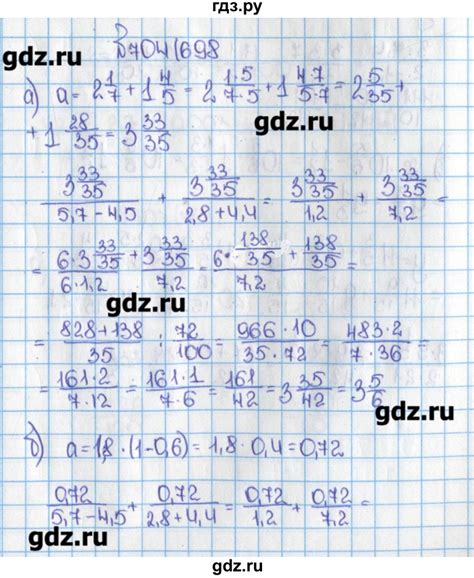 гдз.ру
№704(698
gdz.ru
а) a = 2 1/7 + 1 4/5 = 2 1·5/7·5 + 1 4·7/5·7 = 2 5/35 +
+ 1 28/35 = 3 33/35
gdz.ru
3 33/35 / 5,7-4,5 + 3 33/35 / 2,8+4,4 = 3 33/35 / 1,2 + 3 33/35 / 7,2 =
= 6·3 33/35 + 3 33/35 / 6·1,2 7,2 = 6· 138/35 + 138/35 / 7,2 =
gdz.ru
= 828+138 / 35 : 72/100 = 966·10 / 35·72 = 483·2 / 7·36 =
= 161·2 / 7·12 = 161·1 / 7·6 = 161/42 = 3 35/42 = 3 5/6
gdz.ru
б) a = 1,8·(1-0,6) = 1,8·0,4 = 0,72
0,72 / 5,7-4,5 + 0,72 / 2,8+4,4 = 0,72 / 1,2 + 0,72 / 7,2 =
gdz.ru
gdz.ru
гдз.ру